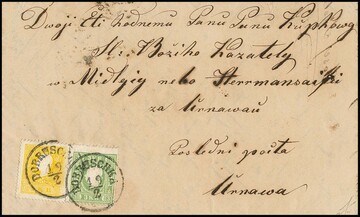 Dwoji Cti hodnemu Panu Panu Kupkowy
Sl. Božiho Kazately
w Midlgig nebo Herrmanseifki
za Urnawau
Poslední pošta
Urnawa
DOBRUSCHKA
19/2
DOBRUSCHKA
19/2